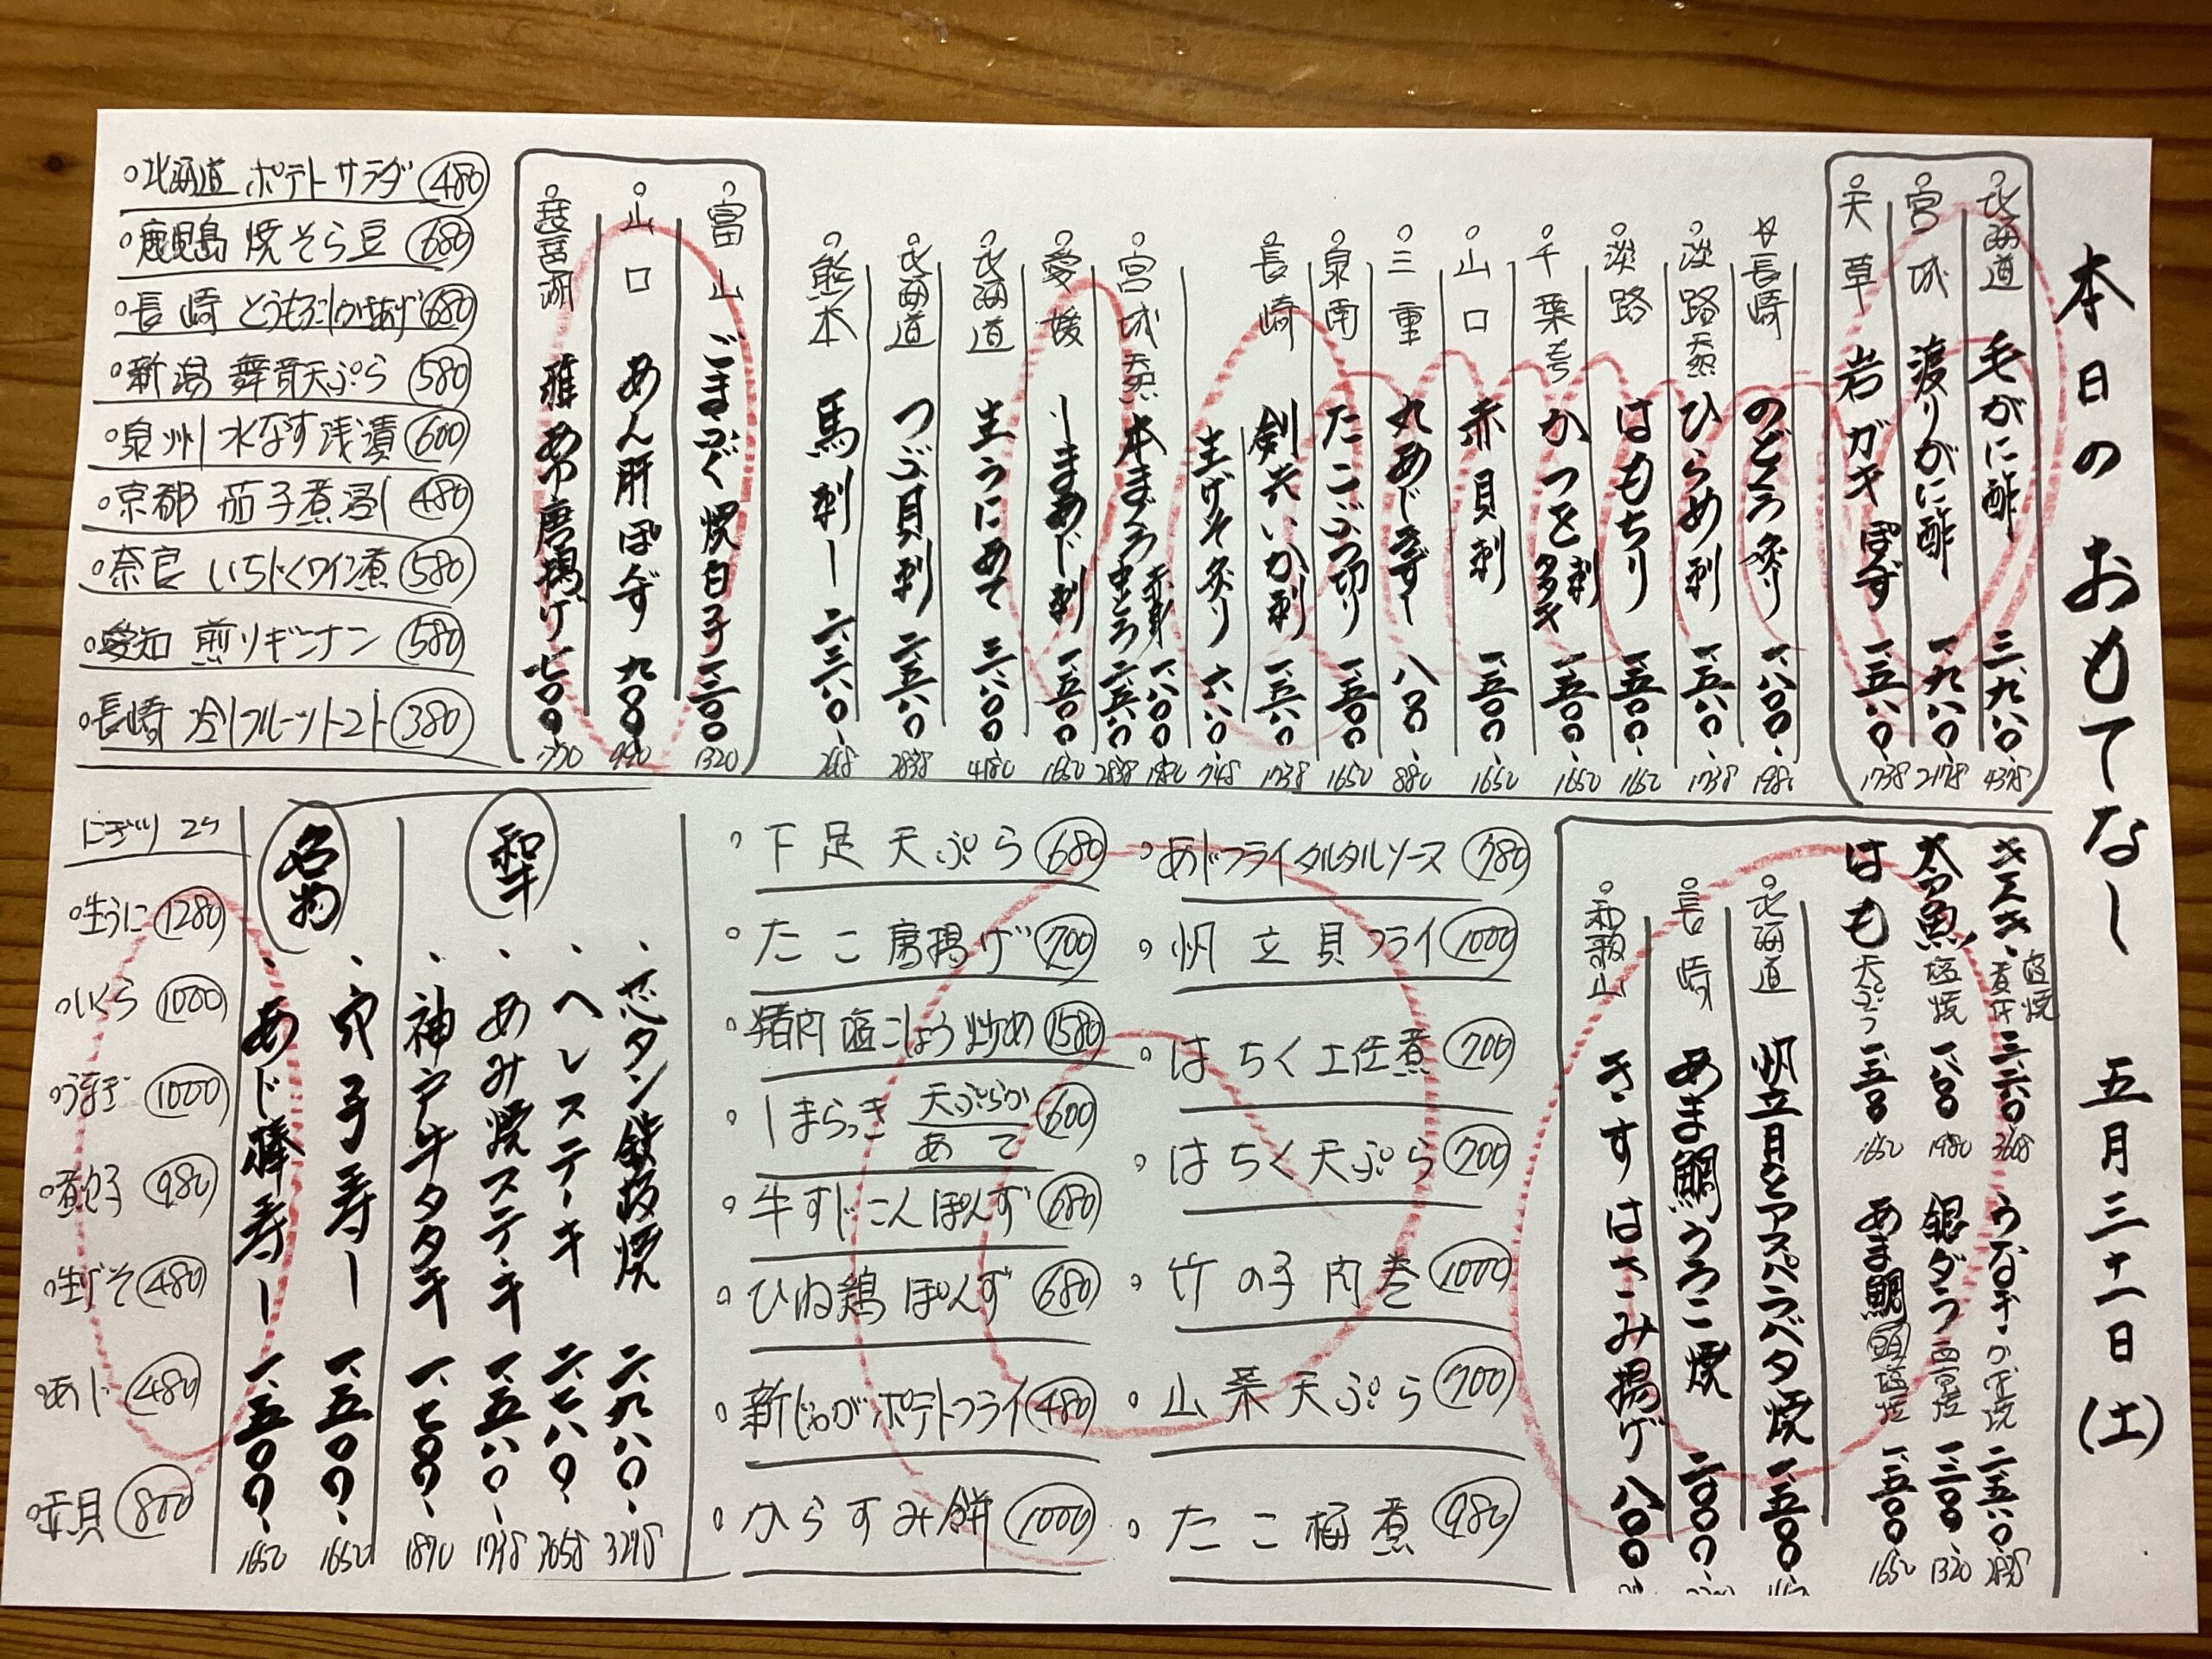 本日のおもてなし 五月三十一日(土)
北海道 毛がに酢 三、九八〇、 4378
宮城 渡りがに酢 一、九八〇、 2178
天草 岩ガキぽず 一、五八〇、 1738
長崎 のどくろ炙り 一、八〇〇、 1980
淡路 天然 ひらめ刺 一、五八〇、 1738
淡路 はもちり 一、五〇〇、 1650
千葉 かつを 刺 タタキ 一、五〇〇、 1650
山口 赤貝刺 一、五〇〇、 1650
三重 丸あじきずし 八〇〇、 880
泉南 たこぶつ切り 一、五〇〇、 1650
長崎 剣先いか刺 一、五八〇、 1738
生げそ炙り 六八〇、 748
宮城 天然 本まぐろ 赤身 一、八〇〇、 1980
中とろ 二、五八〇、 2838
愛媛 しまあじ刺 一、五〇〇、 1650
北海道 生うにあて 三、八〇〇、 4180
北海道 つぶ貝刺 二、五八〇、 2838
熊本 馬刺し 二、三八〇、 2618
富山 ごまふぐ焼白子 一、二〇〇、 1320
山口 あん肝ぽんず 九〇〇、 990
琵琶湖 稚あゆ唐揚げ 七〇〇、 770
北海道 ポテトサラダ 480
鹿児島 焼そら豆 680
長崎 とうもろこしかきあげ 680
新潟 舞茸天ぷら 580
泉州 水なす浅漬 600
京都 茄子煮浸し 480
奈良 いちじくワイン煮 580
愛知 煎りギンナン 580
長崎 冷しフルーツトマト 380
塩焼
煮付
太刀魚 塩焼 一、八〇〇 1980
はも 天ぷら 一、五〇〇 1650
うなぎ かば焼 二、五八〇、 2838
銀ダラ 西京焼 一、二〇〇、 1320
あま鯛 頭 塩焼 一、五〇〇、 1650
北海道 帆立貝とアスパラバター焼 一、五〇〇、
長崎 あま鯛うろこ焼 二、〇〇〇、
和歌山 きすはさみ揚げ 八〇〇
あじフライタルタルソース 780
帆立貝フライ 1000
はちく土佐煮 700
はちく天ぷら 700
竹の子肉巻 1000
山菜天ぷら 700
たこ梅煮 980
下足天ぷら 680
たこ唐揚げ 700
猪肉塩こしょう炒め 1580
しまらっき 天ぷらか あて 600
牛すじこんぽんず 680
ひね鶏ぽんず 680
新じゃがポテトフライ 480
からすみ餅 1000
和牛
芯タン鉄板焼 二、九八〇、 3278
ヘレステーキ 二、七八〇、 3058
あみ焼ステーキ 一、五八〇、 1738
神戸牛タタキ 一、七〇〇、 1870
名物
穴子寿し 一、五〇〇、 1650
あじ棒寿し 一、五〇〇、 1650
にぎり 2ケ
生うに 1280
いくら 1000
うなぎ 1000
煮穴子 980
生げそ 480
あじ 480
赤貝 800